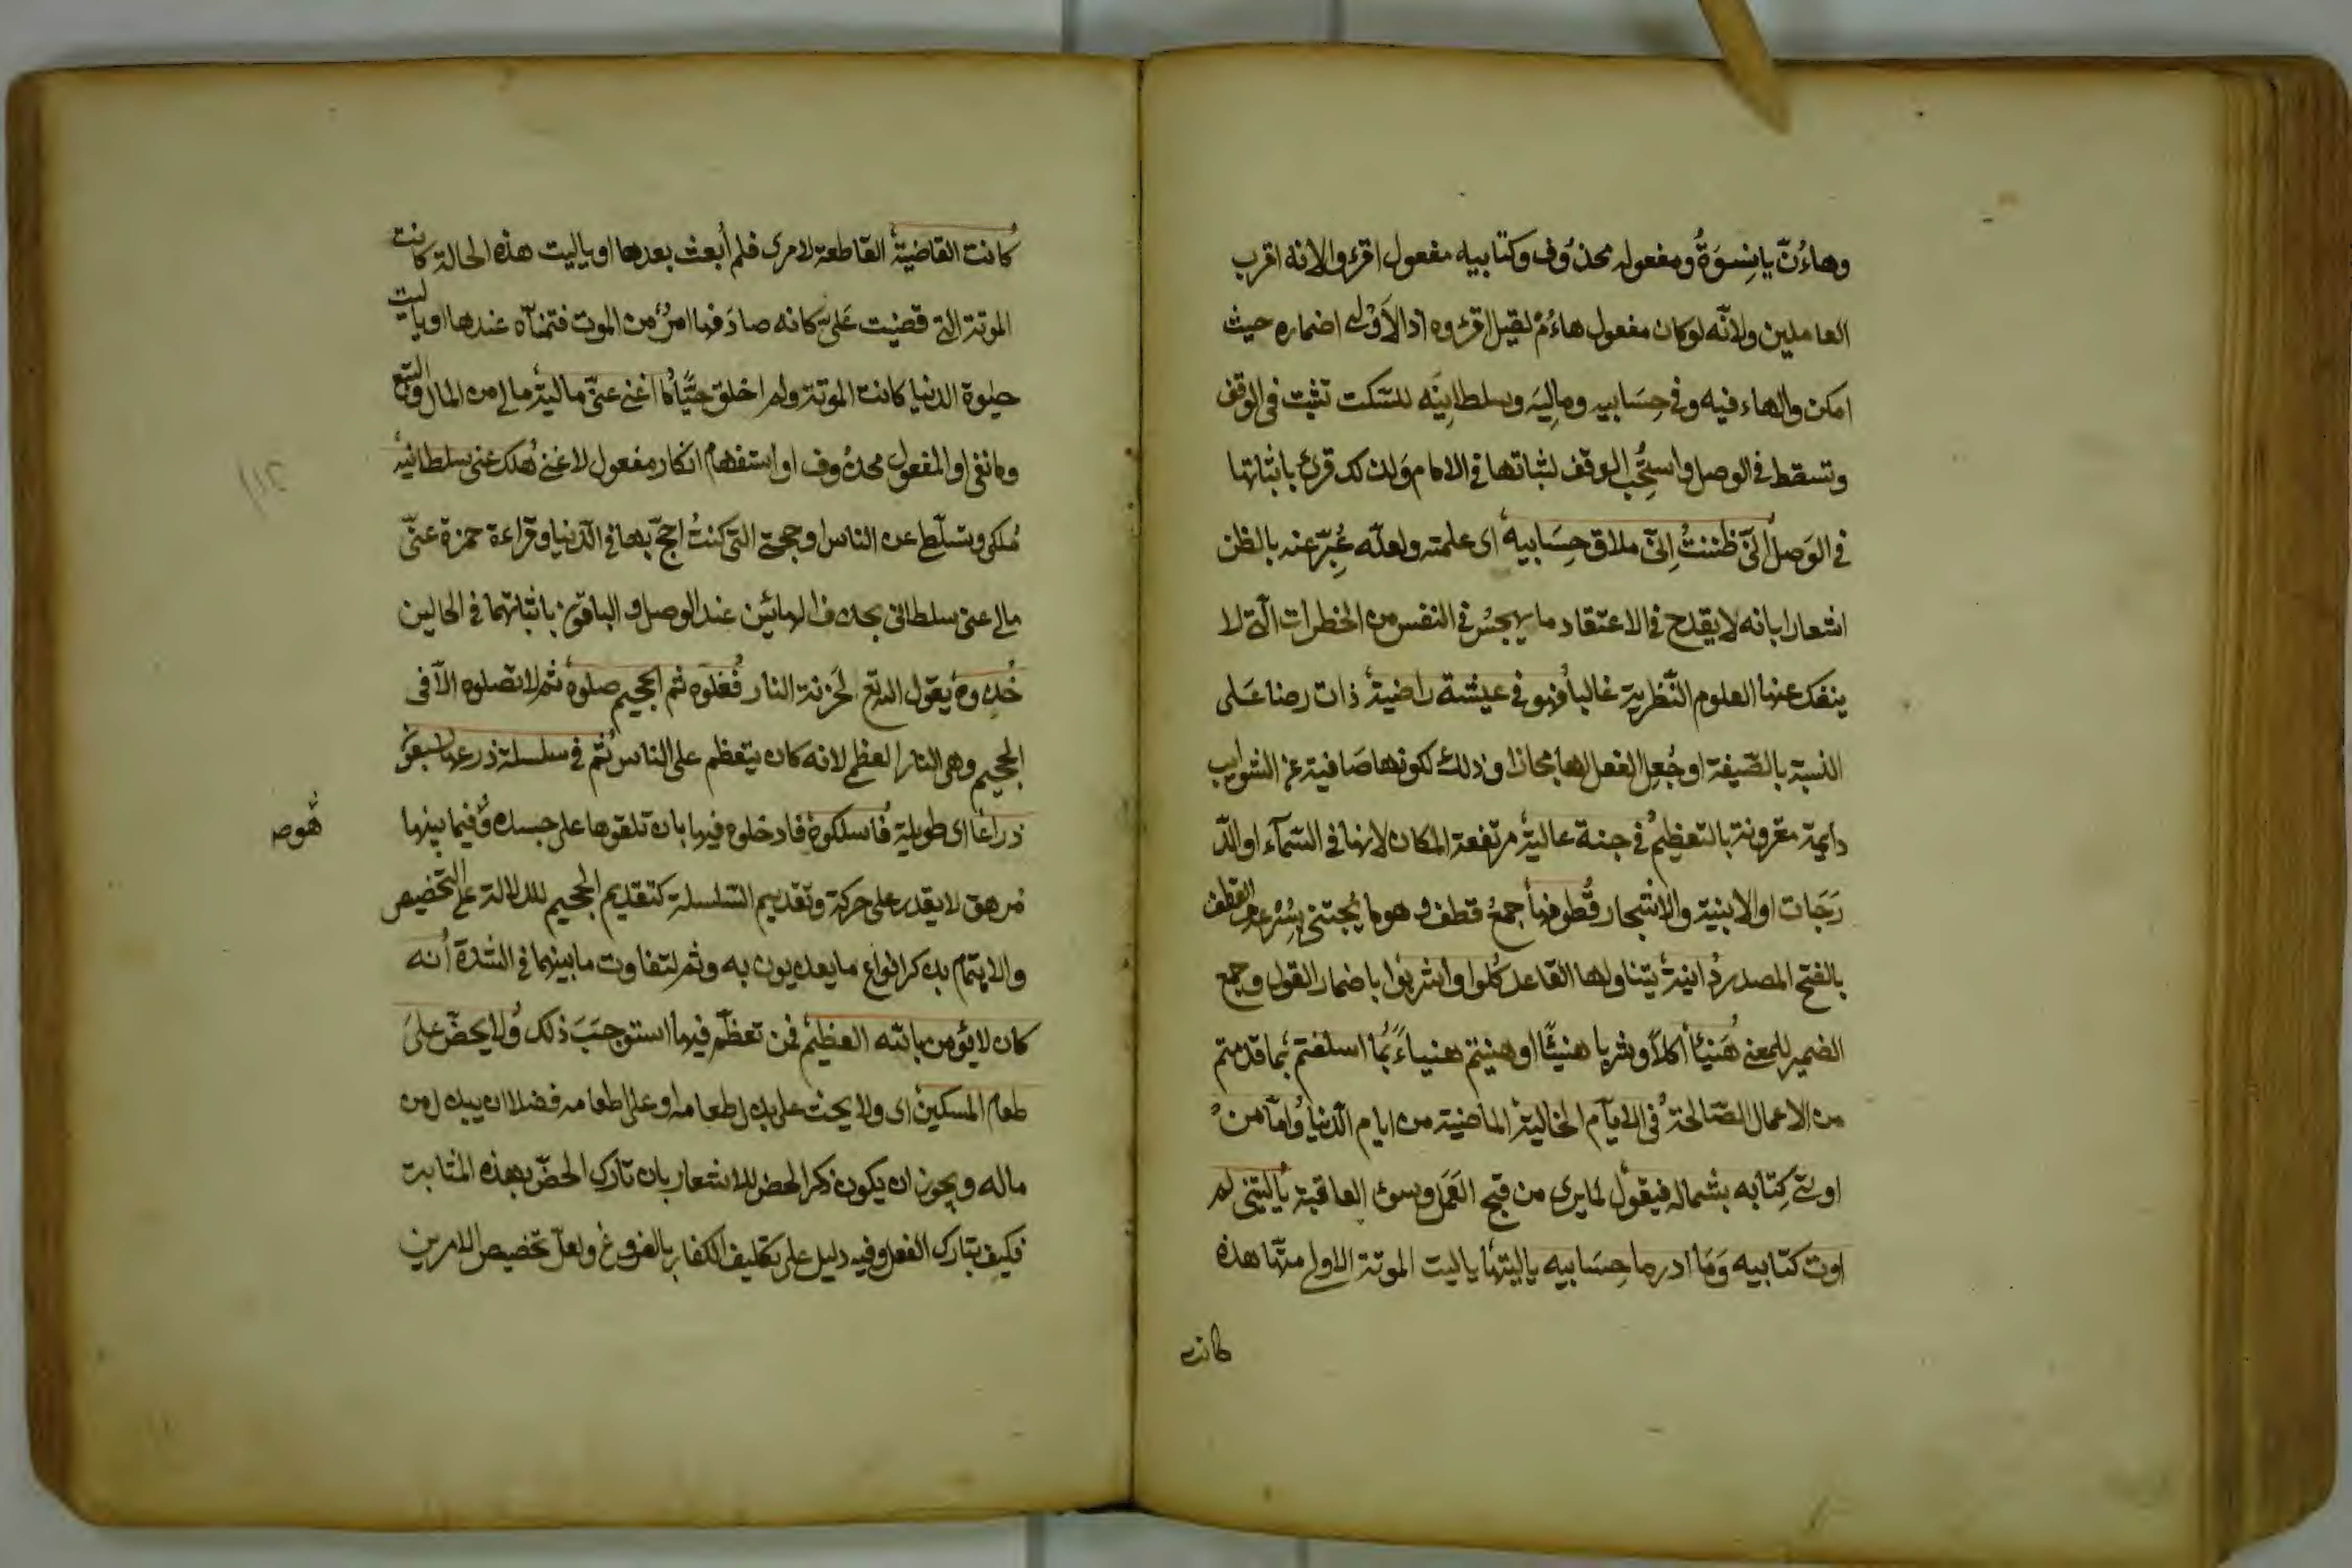 وهاءُنّ يا نِسوَةُ ومفعوله محذوف وكتابيه مفعول اقرؤا لانه اقرب
العاملين ولانّه لو كان مفعول هاءُمُ لقيل اقرؤه اذ الاَوْلى اضماره حيث
امكن والهاء فيه وفى حِسَابيه وماليَه وسلطانيَه للسّكت تثبت فى الوقف
وتسقط فى الوصل واستُحِبّ الوقف لثباتها فى الامام ولذلك قرئ باثباتها
فى الوَصل اِنّى ظننتُ اِنّى ملاق حِسَابيه اى علمته ولعلّه عُبِّر عنه بالظن
اشعارا بانه لا يقدح فى الاعتقاد ما يهجسُ فى النفس من الخطرات الّتى لا
ينفك عنها العلوم النّظرية غالبا فهو فى عيشة راضية ذات رضا عَلى
النسبة بالصّيغة او جُعِل الفعل لها مجازا وذلك لكونها صَافية عن الشوايب
دايمة مقرونة بالتعظيم فى جنة عالية مرتفعة المكان لانها فى السّمآء او الدّ
رَجَات او الابنية والاشجار قُطوفها جمعُ قطف وهو ما يُجتنى بِسُرعة والقطف
بالفتح المصدر دانية يتناولها القاعد كُلوا واشربوا باضمار القول وجمع
الضمير للمعنى هَنيئاً اكلاً وشربا هنيئًا او هنيتم هنياءً بمَا اسلفتم بما قدمتم
من الاعمال الصّالحة فى الايّام الخالية الماضية من ايام الدّنيا واَمّا من
اوتى كِتابه بشماله فيقول لما يرى من قبح العَمَل وسوء العاقبة ياليتنى لم
اوت كتابيه وَمَا ادر ما حِسَابيه ياليتها ياليت الموتة الاولى متّها هذه
كانت
كانت القاضية القاطعة لامرى فلم أبعث بعدها او ياليت هذه الحالة كانت
الموتة التى قضيت عَلىّ كانه صادَفها امرّ من الموت فتمنّاه عندها او ياليت
حيٰوة الدنيا كانت الموتة ولم اخلق حيًّا ما اغنى عنّى مالية مالى من المال والتبع
وما نفى والمفعول محذوف او استفهام انكار مفعول لاغنى هَلك عنى سلطانيه
مُلكى وتسلّطى على الناس او حجتى التى كنتُ احتجّ بها فى الدّنيا وقراءة حمزة عنّى
مالى عنى سلطانى بحذف الهائين عند الوصل والباقون باثباتهما فى الحالين
خُذوه يقول الله تع لخزنة النار فغلّوه ثم الجحيم صلوه ثم لا تصّلوه الّا فى
الجحيم وهى النار العظمى لانه كان يتعظم على الناس ثم فى سلسلة ذرعها سبعون
ذراعًا اى طويلة فاسلكوه فادخلوه فيها بان تلقوها على جسده وَفيما بينها
هوص
مُرهق لا يقدر على حركة وتقديم السّلسلة كتقديم الجحيم للدلالة على التخصيص
والاهتمام بذكر انواع ما يعذبون به وثم لتفاوت ما بينهما فى الشّدّة انه
كان لا يؤمن بالله العظيم فمن تعظّم فيها استوجَبَ ذلك ولا يحضّ على
طعام المسكين اى ولا يحث على بذل طعامه او على اطعامه فضلا ان يبذل من
ماله ويجوز ان يكون ذكر الحض للاشعار بان تارك الحضّ بهذه المثابة
فكيف بتارك الفعل وفيه دليل على تكليف الكفار بالفروع ولعلّ تخصيص الامرين